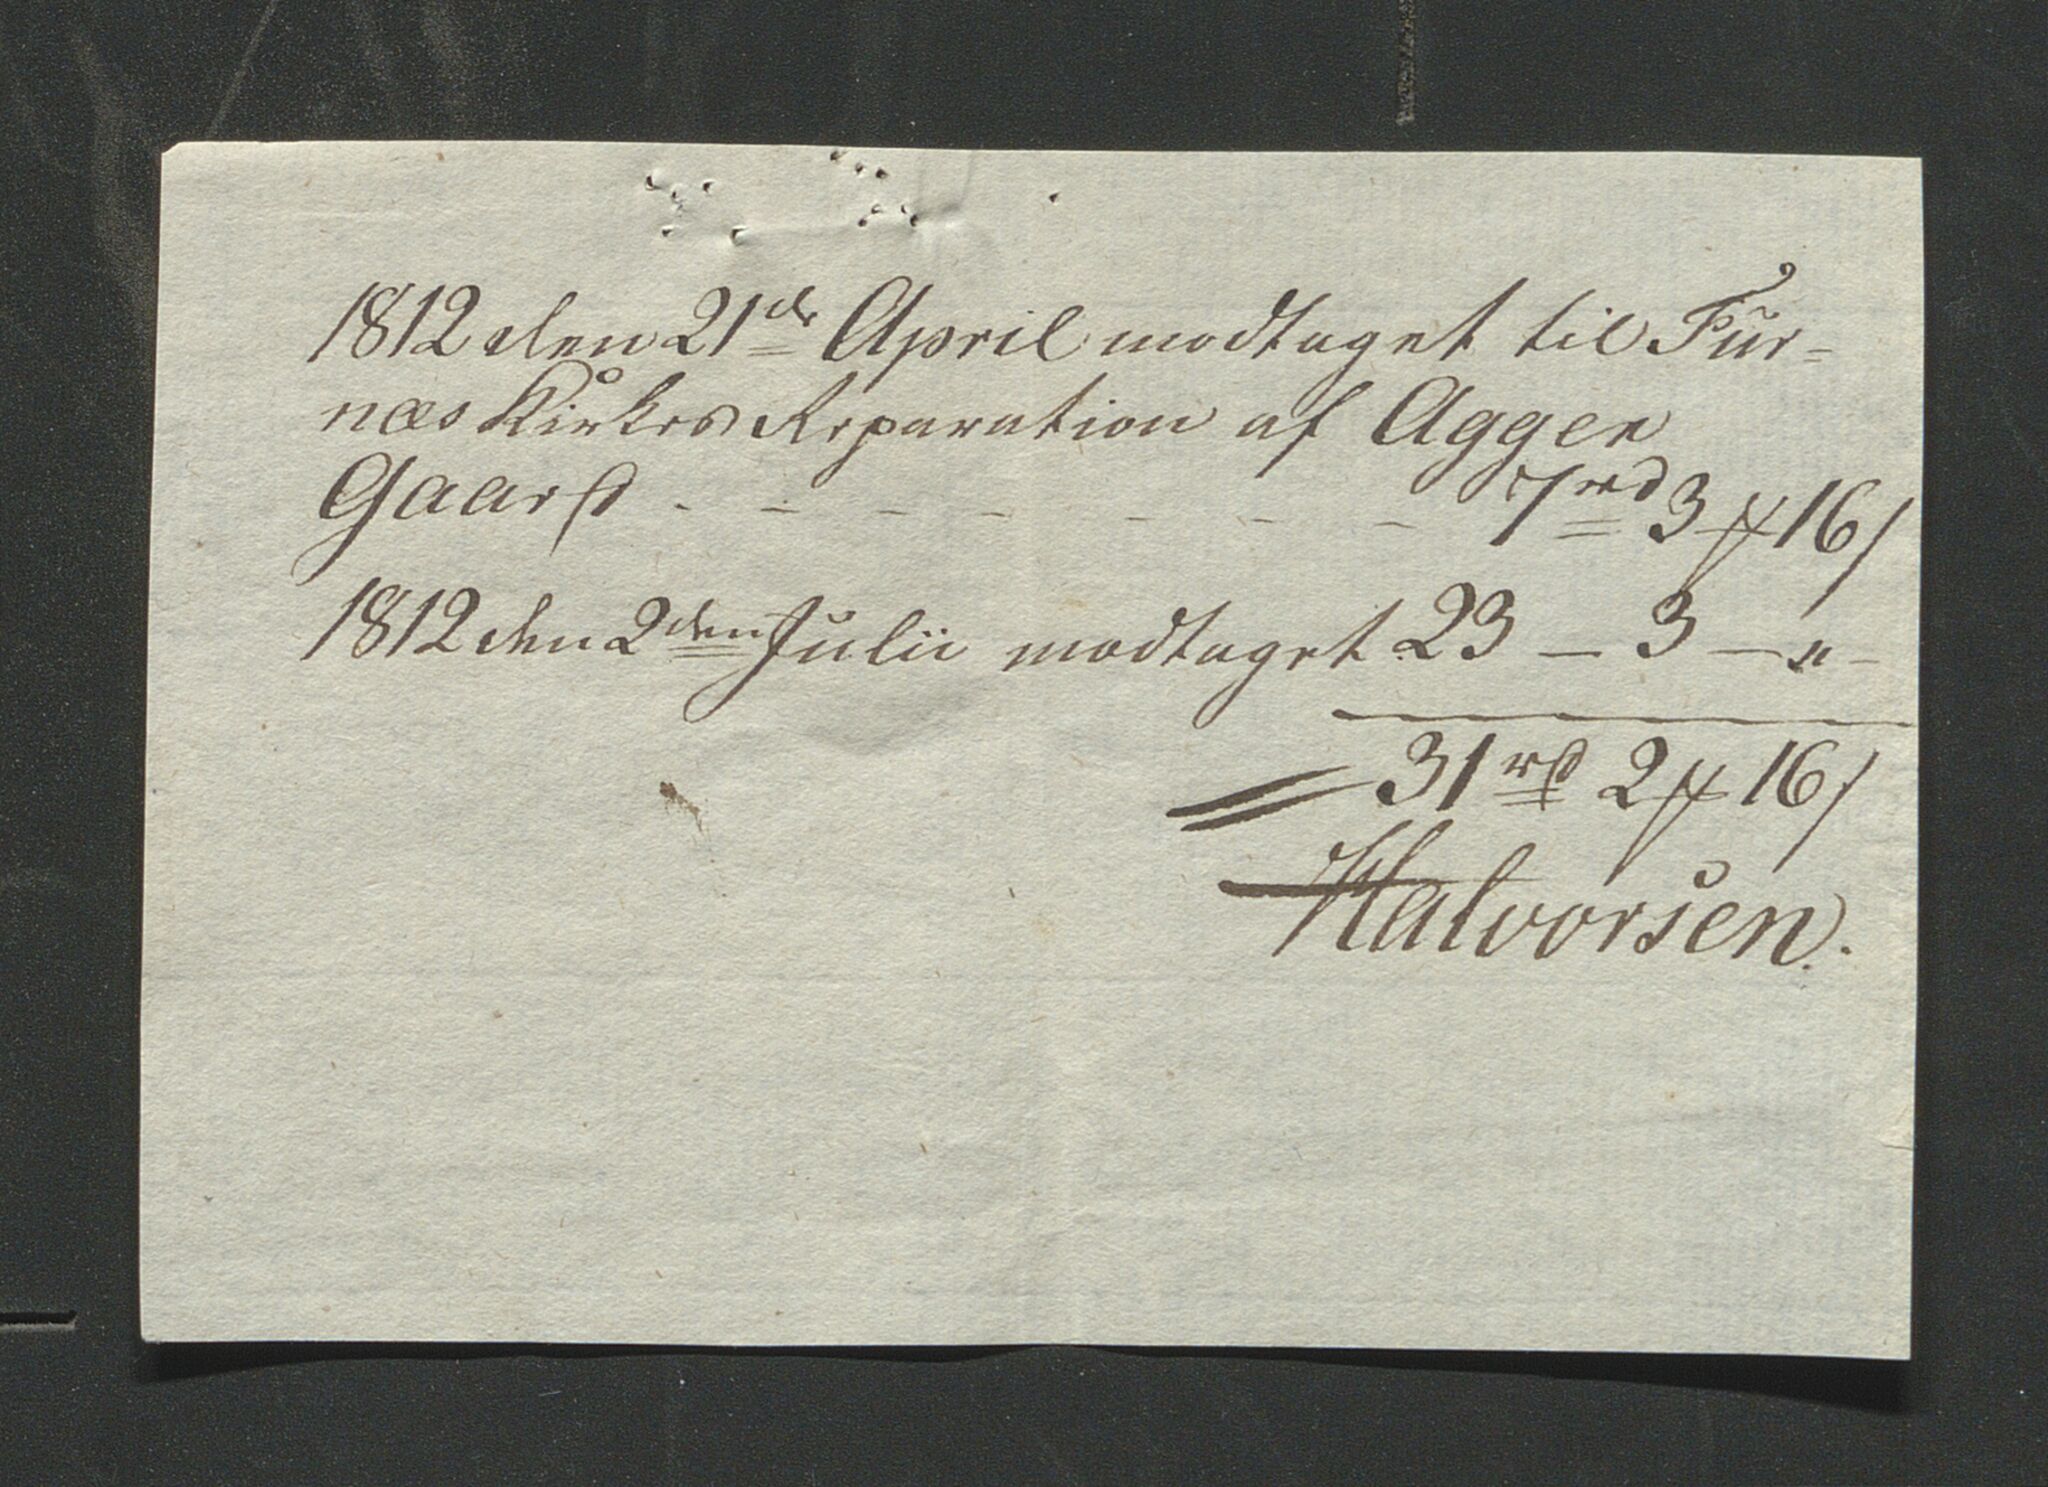 1812 den 21de April modtaget til Fur=
næs Kirkes Reparation af Agger
Gaard - - - - - - - 7rd 3 # 16 /
1812 den 2den Julii modtaget 23 - 3 - " -
31rd 2 # 16 /
Halvorsen.